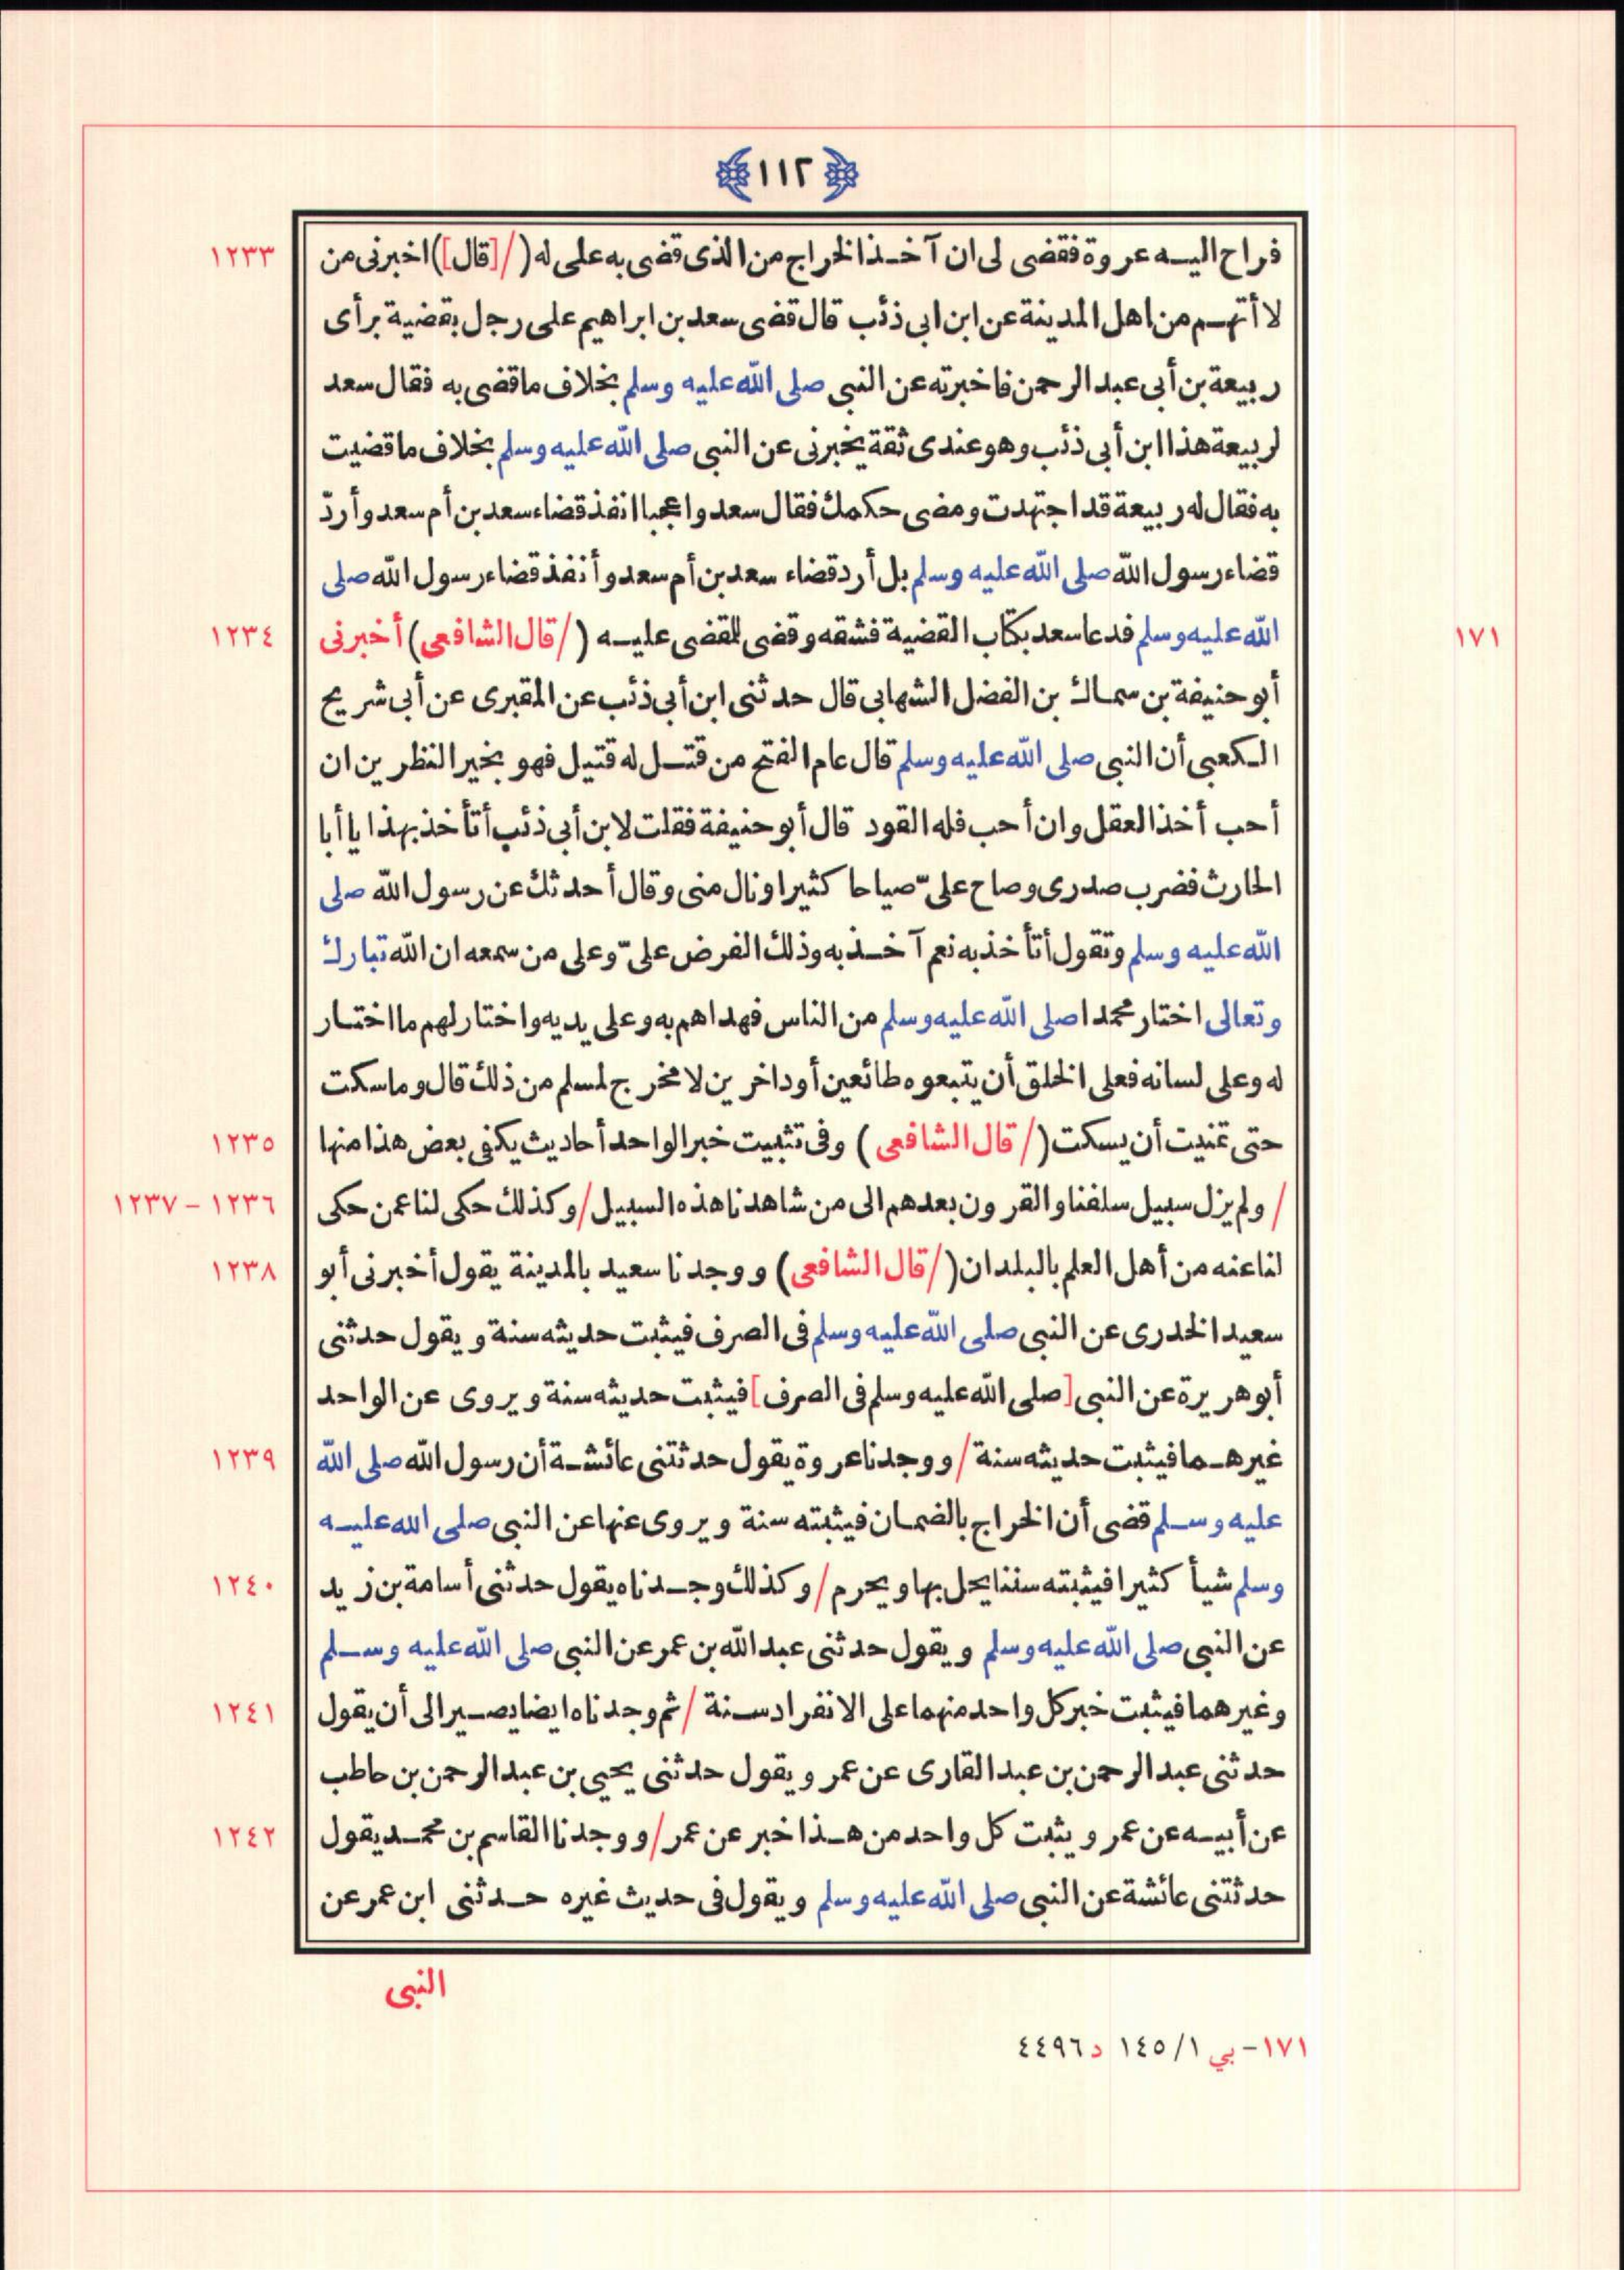 ١١٢
فراح اليه عروة فقضى لى ان آخذ الخراج من الذى قضى به على له (/[قال]) اخبرنى من ١٢٣٣
لا أتهم من اهل المدينة عن ابن ابى ذئب قال قضى سعد بن ابراهيم على رجل بقضية برأى
ربيعة بن أبى عبد الرحمن فاخبرته عن النبى صلى الله عليه وسلم بخلاف ما قضى به فقال سعد
لربيعة هذا ابن أبى ذئب وهو عندى ثقة يخبرنى عن النبى صلى الله عليه وسلم بخلاف ما قضيت
به فقال له ربيعة قد اجتهدت ومضى حكمك فقال سعد واعجبا انفذ قضاء سعد بن أم سعد وأردّ
قضاء رسول الله صلى الله عليه وسلم بل أرد قضاء سعد بن أم سعد وأنفذ قضاء رسول الله صلى
١٧١ الله عليه وسلم فدعا سعد بكتاب القضية فشقه وقضى للمقضى عليه (/قال الشافعى) أخبرنى ١٢٣٤
أبو حنيفة بن سماك بن الفضل الشهابى قال حدثنى ابن أبى ذئب عن المقبرى عن أبى شريح
الكعبى أن النبى صلى الله عليه وسلم قال عام الفتح من قتل له قتيل فهو بخير النظرين ان
أحب أخذ العقل وان أحب فله القود قال أبو حنيفة فقلت لابن أبى ذئب أتأخذ بهذا يا أبا
الحارث فضرب صدرى وصاح علىّ صياحا كثيرا ونال منى وقال أحدثك عن رسول الله صلى
الله عليه وسلم وتقول أتأخذ به نعم آخذ به وذلك الفرض علىّ وعلى من سمعه ان الله تبارك
وتعالى اختار محمدا صلى الله عليه وسلم من الناس فهداهم به وعلى يديه واختار لهم ما اختار
له وعلى لسانه فعلى الخلق أن يتبعوه طائعين أو داخرين لا مخرج لمسلم من ذلك قال وما سكت
حتى تمنيت أن يسكت (/قال الشافعى) وفى تثبيت خبر الواحد أحاديث يكفى بعض هذا منها ١٢٣٥
/ ولم يزل سبيل سلفنا والقرون بعدهم الى من شاهدنا هذه السبيل / وكذلك حكى لنا عمن حكى ١٢٣٦ - ١٢٣٧
لنا عنه من أهل العلم بالبلدان (/قال الشافعى) ووجدنا سعيد بالمدينة يقول أخبرنى أبو ١٢٣٨
سعيد الخدرى عن النبى صلى الله عليه وسلم فى الصرف فيثبت حديثه سنة ويقول حدثنى
أبو هريرة عن النبى [صلى الله عليه وسلم فى الصرف] فيثبت حديثه سنة ويروى عن الواحد
غيرهما فيثبت حديثه سنة / ووجدنا عروة يقول حدثتنى عائشة أن رسول الله صلى الله ١٢٣٩
عليه وسلم قضى أن الخراج بالضمان فيثبته سنة ويروى عنها عن النبى صلى الله عليه
وسلم شيأ كثيرا فيثبته سننا يحل بها ويحرم / وكذلك وجدناه يقول حدثنى أسامة بن زيد ١٢٤٠
عن النبى صلى الله عليه وسلم ويقول حدثنى عبد الله بن عمر عن النبى صلى الله عليه وسلم
وغيرهما فيثبت خبر كل واحد منهما على الانفراد سنة / ثم وجدناه ايضا يصير الى أن يقول ١٢٤١
حدثنى عبد الرحمن بن عبد القارى عن عمر ويقول حدثنى يحيى بن عبد الرحمن بن حاطب
عن أبيه عن عمر ويثبت كل واحد من هذا خبر عن عمر / ووجدنا القاسم بن محمد يقول ١٢٤٢
حدثتنى عائشة عن النبى صلى الله عليه وسلم ويقول فى حديث غيره حدثنى ابن عمر عن
النبى
١٧١ - بي ١/١٤٥ د ٤٤٩٦